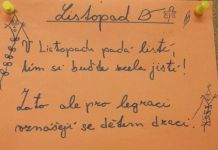 Listopad
V Listopadu padá listí,
tím si buďte zcela jisti!
Zato ale pro legraci
vznášejí se dětem draci.